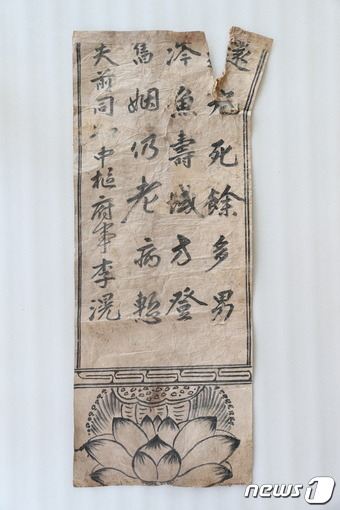 死餘多男
冷魚壽域方登
馬姻仍老病慙
夫前同中樞府事李滉
news1